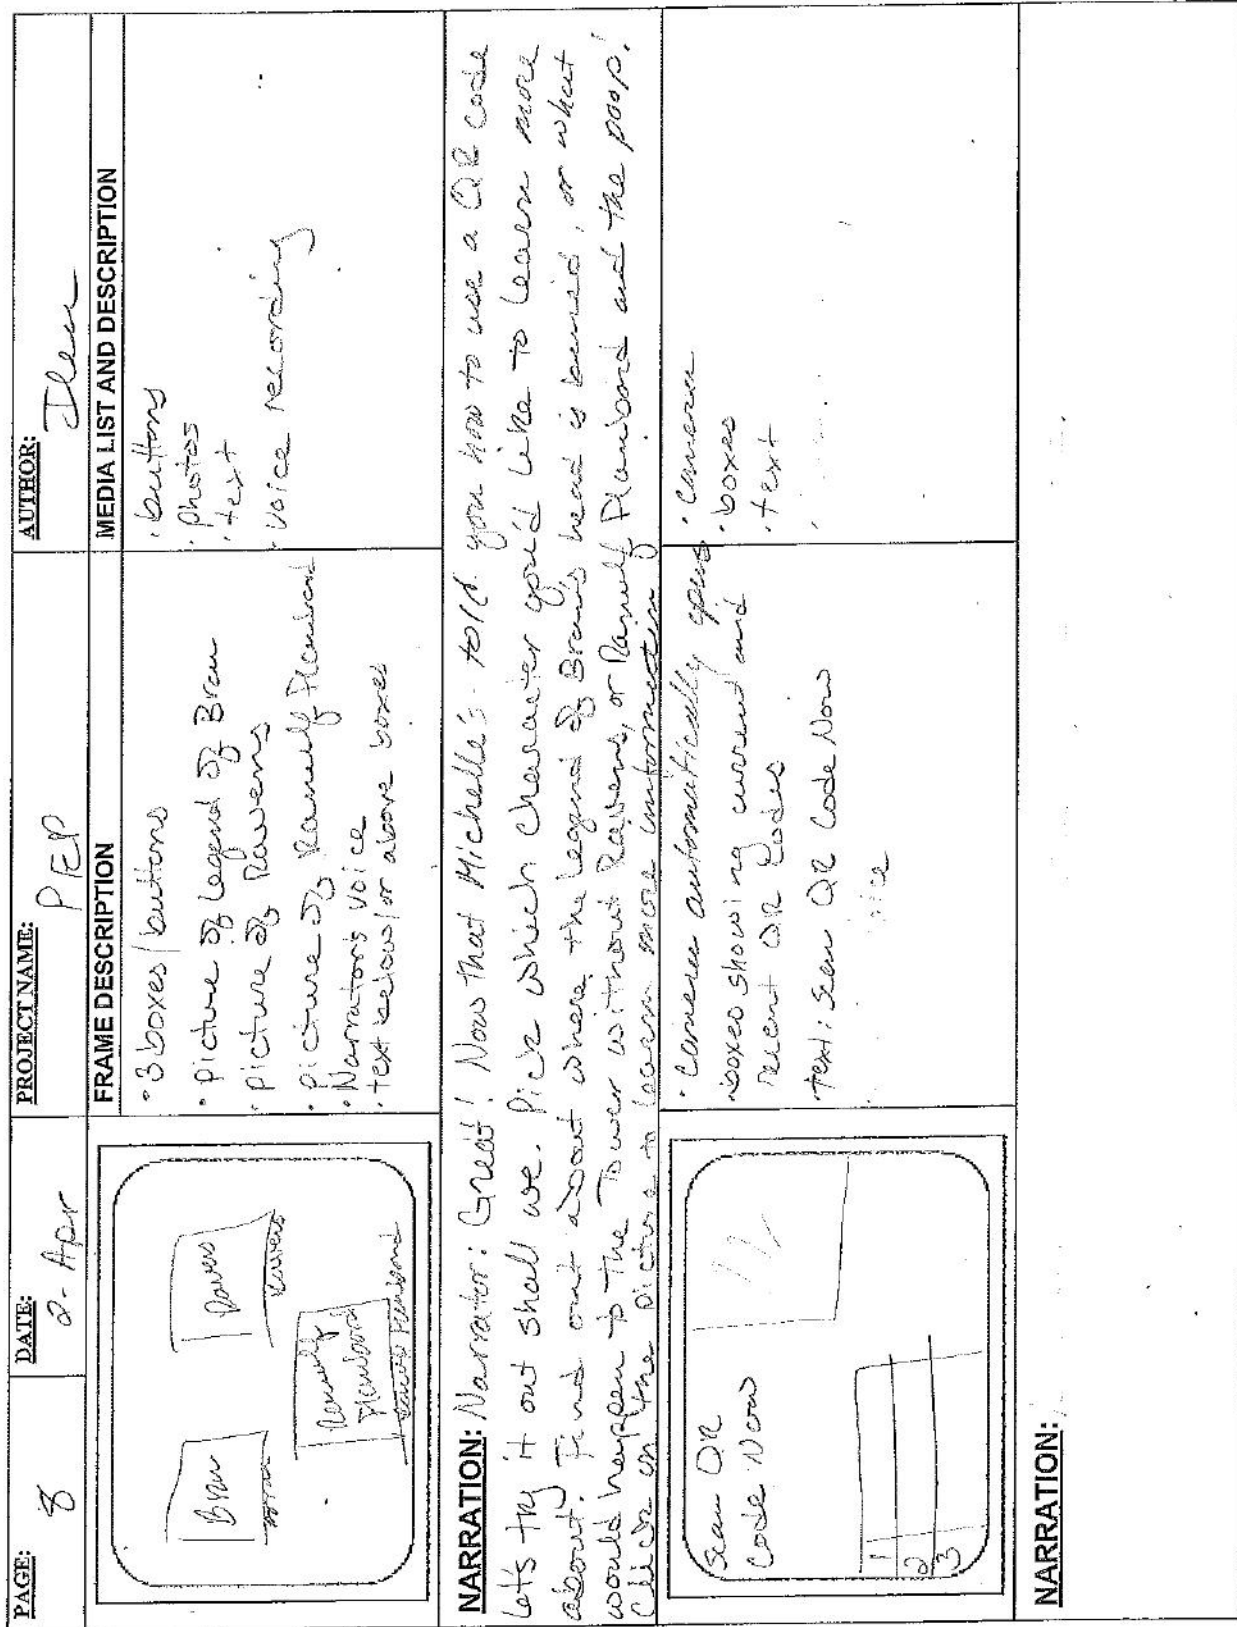 PAGE: 8
DATE: 2-Apr
PROJECT NAME: PEP
AUTHOR:
FRAME DESCRIPTION
MEDIA LIST AND DESCRIPTION
Bran
Bran
Ravens
Ravens
Ranulf
Flambard
Ranulf Flambard
• 3 boxes/buttons
• picture of Legend of Bran
• picture of Ravens
• picture of Ranulf Flambard
• Narrator's voice
• text below/or above boxes
• buttons
• photos
• text
• voice recording
NARRATION: Narrator: Great! Now that Michelle's told you how to use a QR code
Let's try it out shall we. Pick which character you'd like to learn more
about. Find out about where the Legend of Bran's head is buried, or what
would happen to the Tower without Ravens, or Ranulf Flambard and the poop!
Click on the picture to learn more information
Scan QR
Code Now
1
2
3
• Camera automatically opens
• boxes showing current and
recent QR Codes
text: Scan QR Code Now
• Camera
• boxes
• text
NARRATION: